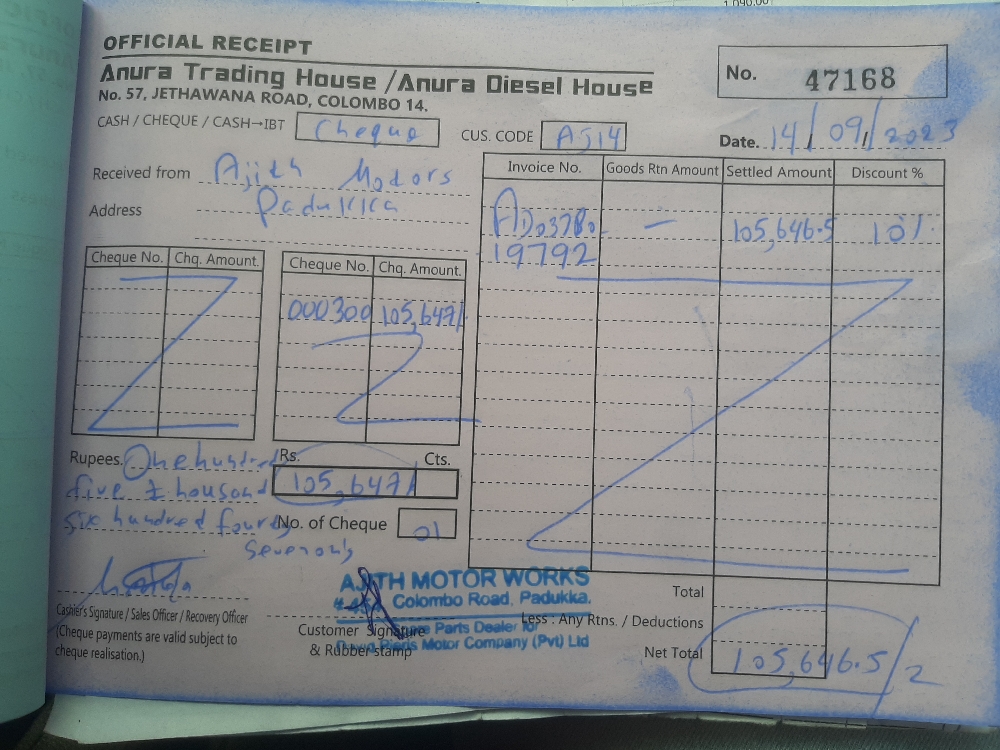 1,090.00
OFFICIAL RECEIPT
Anura Trading House /Anura Diesel House
No. 57, JETHAWANA ROAD, COLOMBO 14.
No. 47168
CASH / CHEQUE / CASH→IBT Cheque CUS. CODE AJ14 Date. 14/09/2023
Received from Ajith Motors
Address Padukka
Invoice No. Goods Rtn Amount Settled Amount Discount %
AD03780 — 105,646.5 10%
19792
Cheque No. Chq. Amount. Cheque No. Chq. Amount.
000300 105,647/
Rupees. One hundred
five thousand
six hundred fourty
seven only
Rs. Cts.
105,647/
No. of Cheque 01
Cashier's Signature / Sales Officer / Recovery Officer
(Cheque payments are valid subject to
cheque realisation.)
AJITH MOTOR WORKS
Colombo Road, Padukka.
Parts Dealer for
Motor Company (Pvt) Ltd
Customer Signature
& Rubber stamp
Total
Less : Any Rtns. / Deductions
Net Total 105,646.5/2